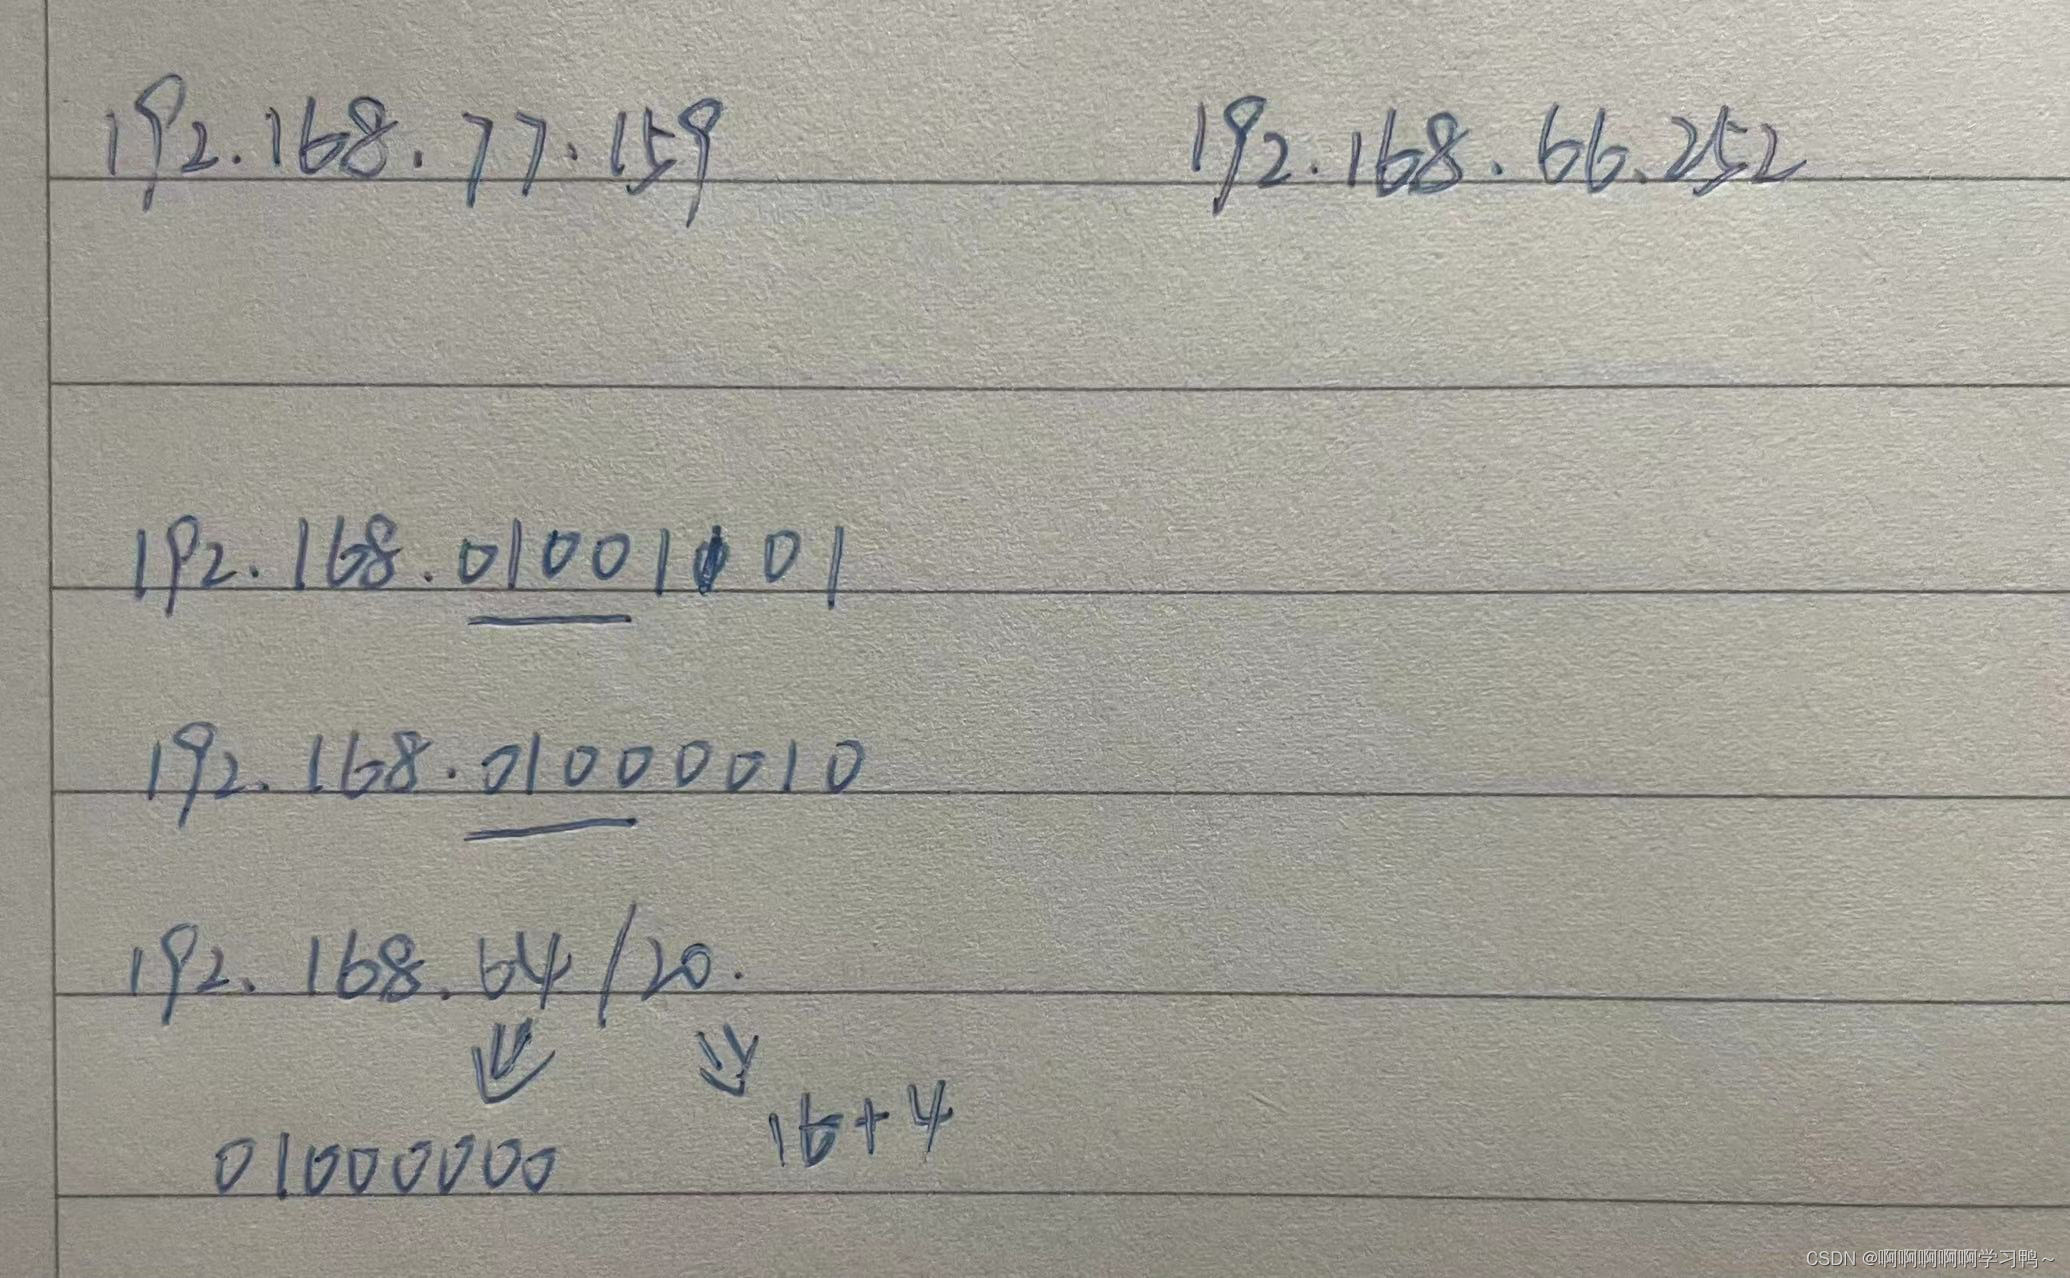 192.168.77.159 192.168.66.252
192.168.01001101
192.168.01000010
192.168.64/20.
16+4
01000000
CSDN @啊啊啊啊啊学习鸭~